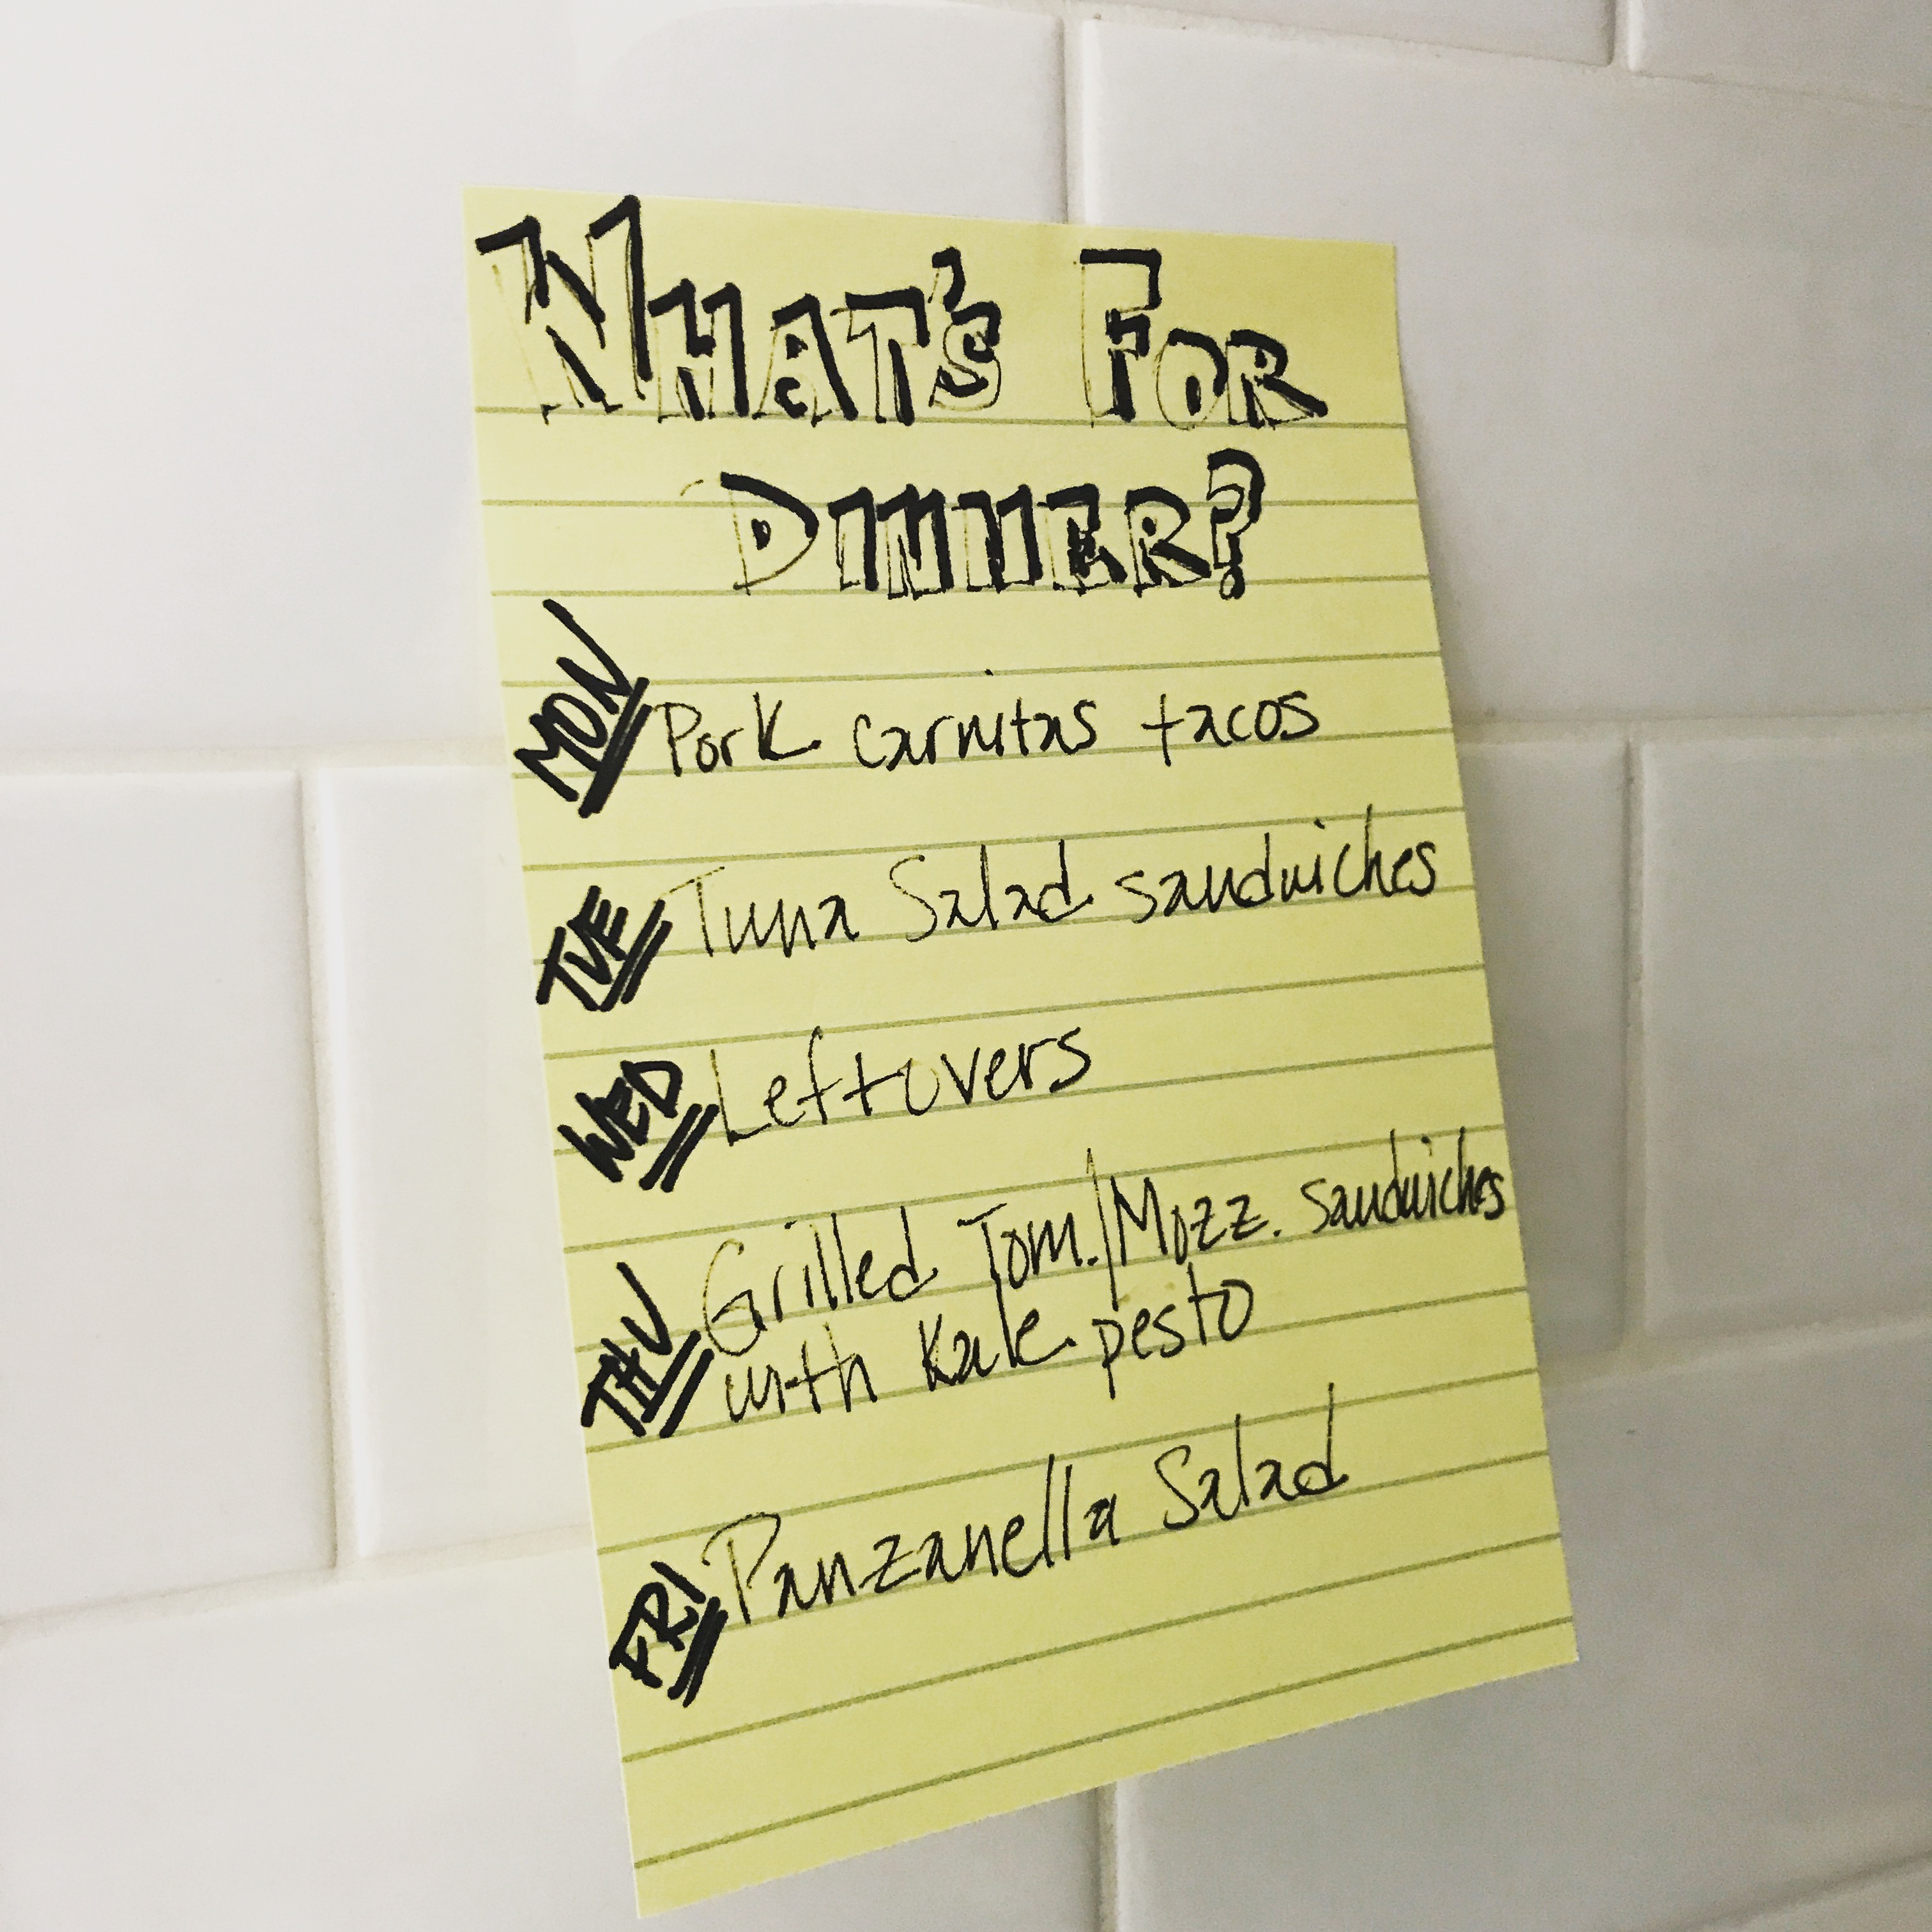 WHAT'S FOR
DINNER?
MON Pork carnitas tacos
TUE Tuna Salad sandwiches
WED Leftovers
THU Grilled Tom./Mozz. sandwiches
with Kale pesto
FRI Panzanella Salad